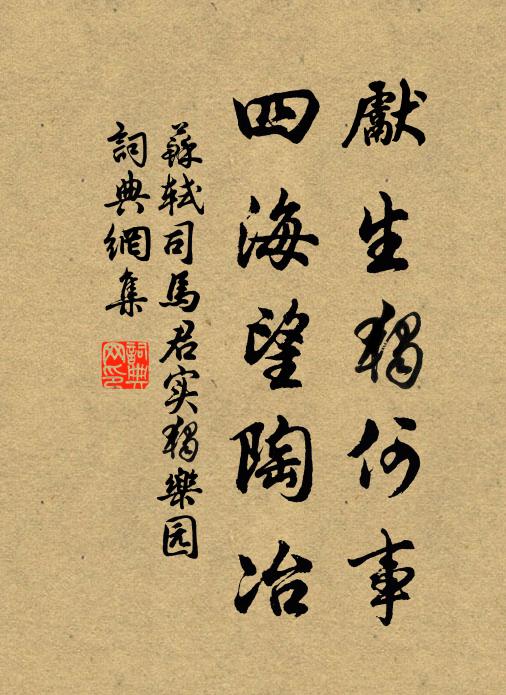 獻生獨何事
四海望陶冶
蘇軾司馬君实獨樂园
詞典網集
詞典网印